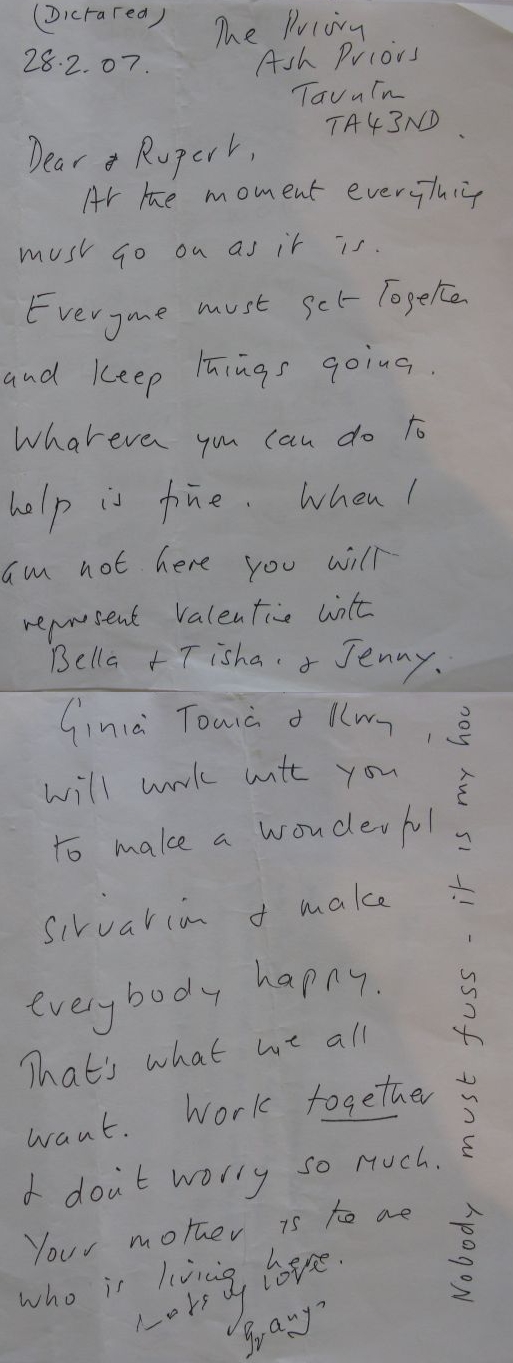 (Dictated)
28.2.07.
The Priory
Ash Priors
Taunton
TA43ND.
Dear Rupert,
At the moment everything
must go on as it is.
Everyone must get together
and keep things going.
Whatever you can do to
help is fine. When I
am not here you will
represent Valentine with
Bella & Tisha. & Jenny.
Ginia Tonia &
will work with you
to make a wonderful
situation & make
everybody happy.
That's what we all
want. Work together
& don't worry so much.
Your mother is the one
who is living here.
Lots of love.
Nobody must fuss - it is my hou